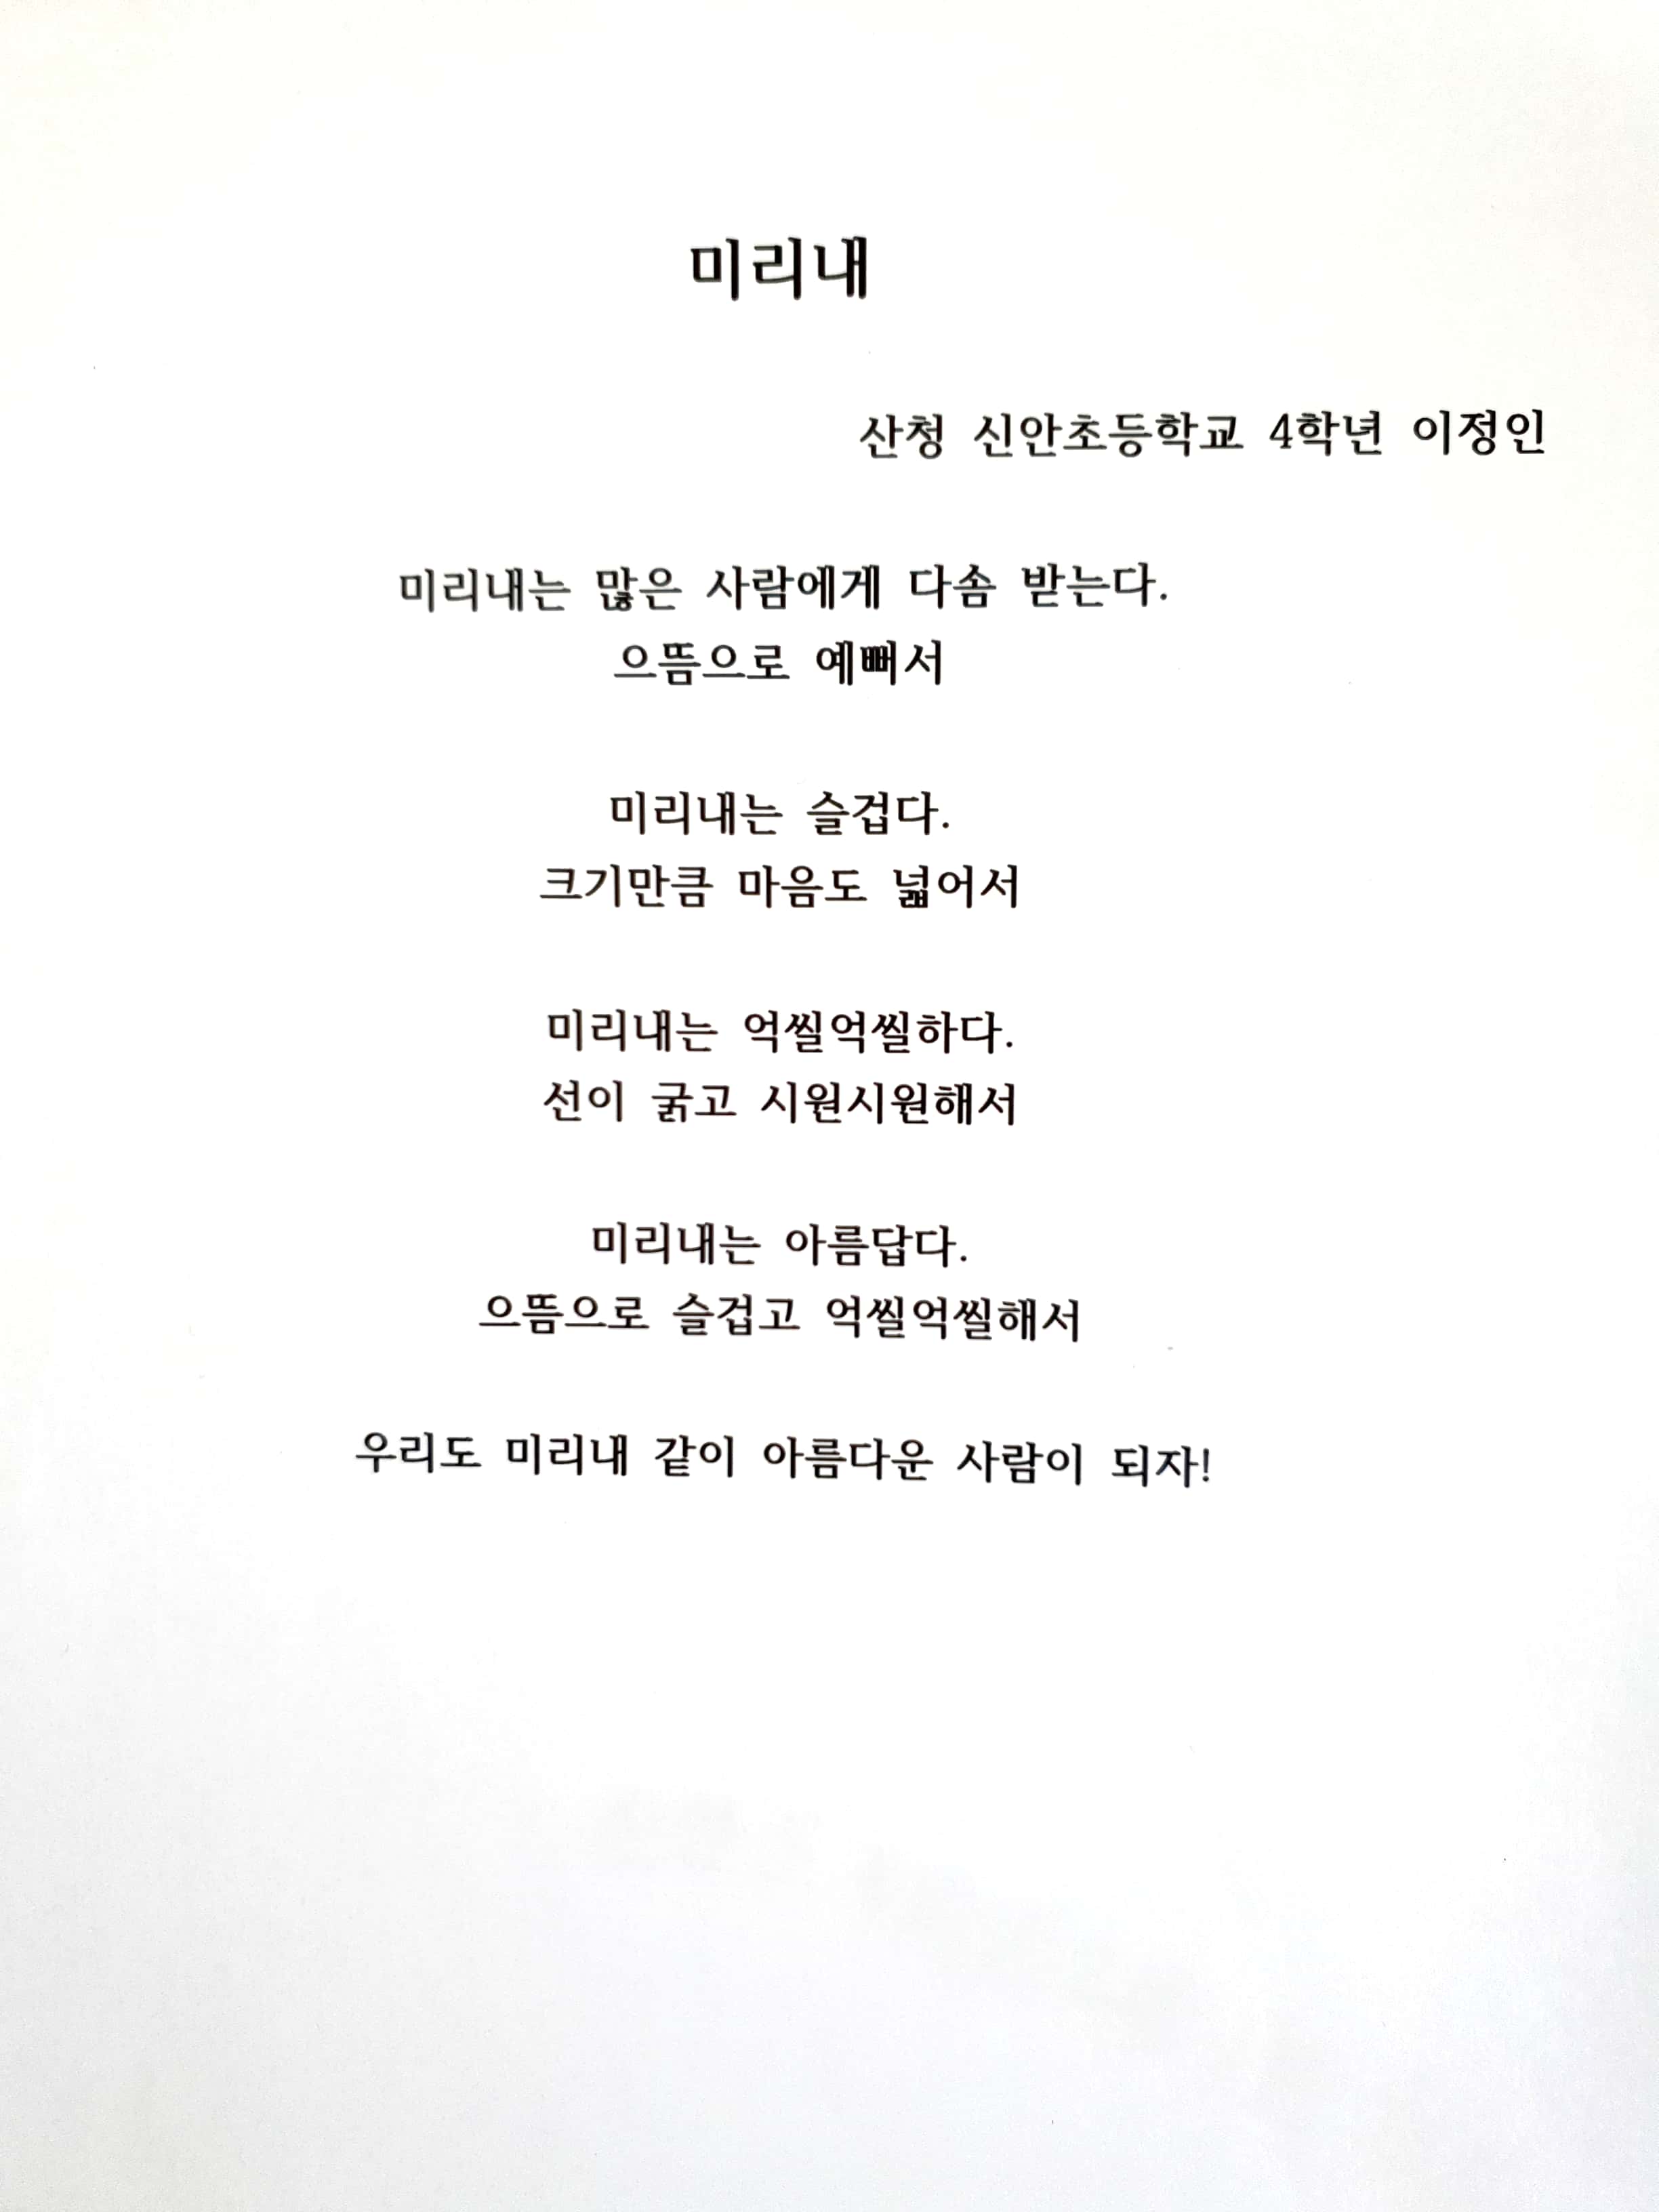 미리내
산청 신안초등학교 4학년 이정인
미리내는 많은 사람에게 다솜 받는다.
으뜸으로 예뻐서
미리내는 슬겁다.
크기만큼 마음도 넓어서
미리내는 억씰억씰하다.
선이 굵고 시원시원해서
미리내는 아름답다.
으뜸으로 슬겁고 억씰억씰해서
우리도 미리내 같이 아름다운 사람이 되자!